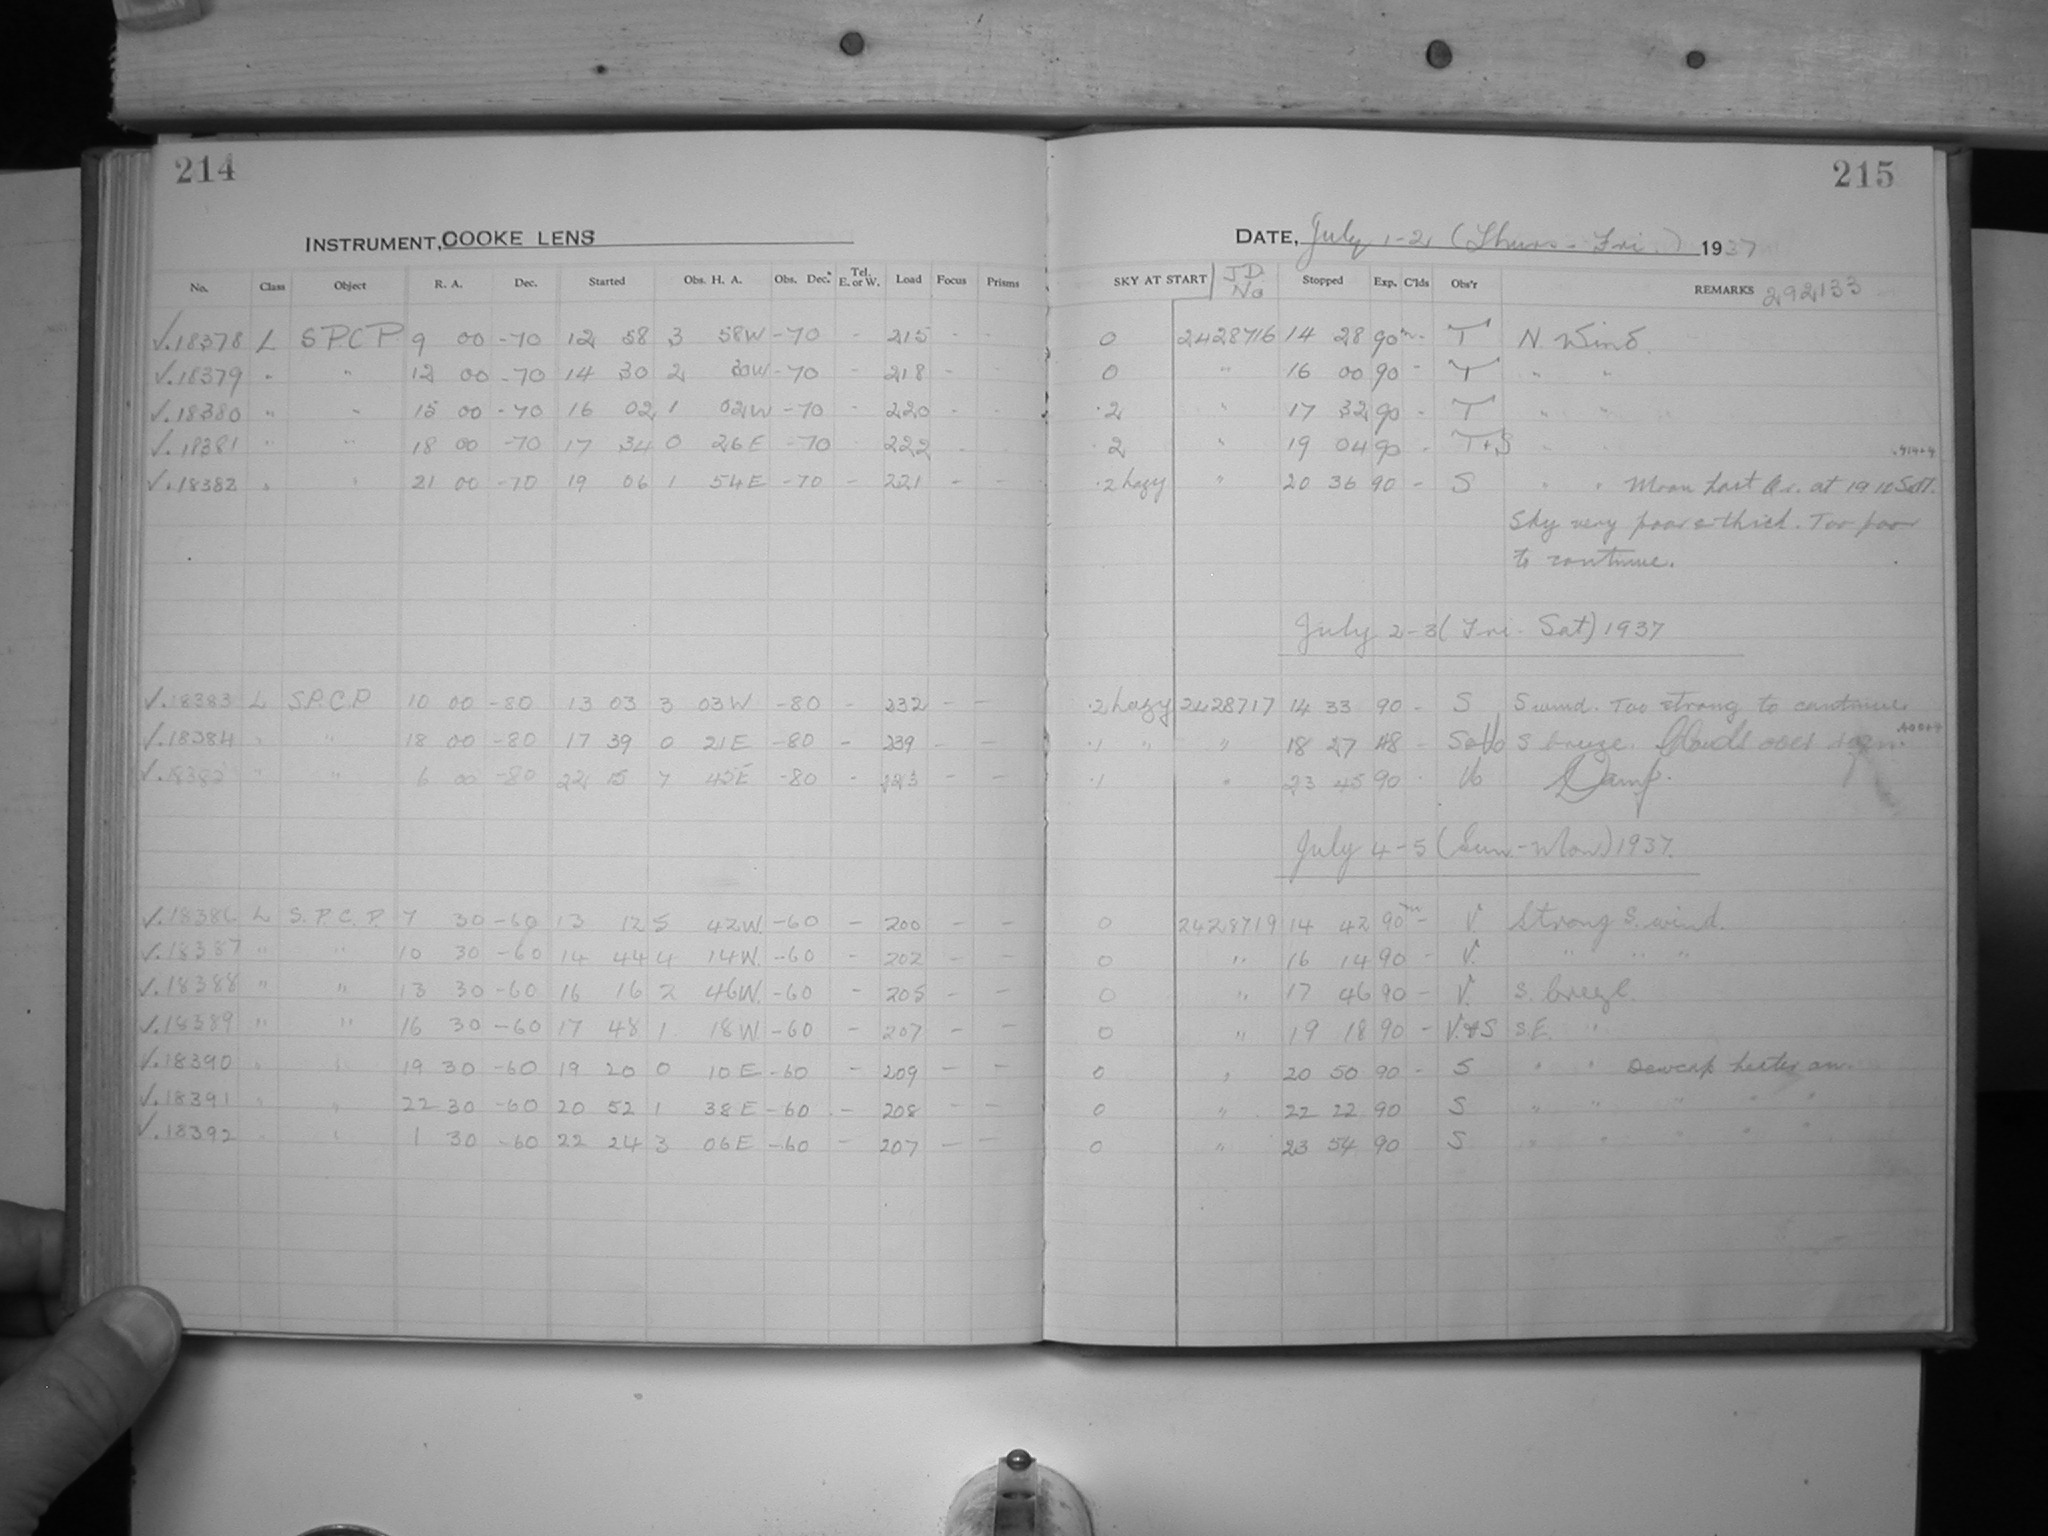 214
INSTRUMENT, COOKE LENS
No. Class Object R. A. Dec. Started Obs. H. A. Obs. Dec. Tel. E. or W. Load Focus Prisms
√.18378 L S.P.C.P. 9 00 -70 12 58 3 58W -70 - 215 - -
√.18379 " " 12 00 -70 14 30 2 30W -70 - 218 - -
√.18380 " " 15 00 -70 16 02 1 02W -70 - 220 - -
√.18381 " " 18 00 -70 17 34 0 26E -70 - 222 - -
√.18382 " " 21 00 -70 19 06 1 54E -70 - 221 - -
√.18383 L S.P.C.P. 10 00 -80 13 03 3 03W -80 - 232 - -
√.18384 " " 18 00 -80 17 39 0 21E -80 - 239 - -
√.18385 " " 6 00 -80 22 15 7 45E -80 - - -
√.18386 L S.P.C.P. 7 30 -60 13 12 5 42W. -60 - 200 - -
√.18387 " " 10 30 -60 14 44 4 14W. -60 - 202 - -
√.18388 " " 13 30 -60 16 16 2 46W. -60 - 205 - -
√.18389 " " 16 30 -60 17 48 1 18W -60 - 207 - -
√.18390 " " 19 30 -60 19 20 0 10E -60 - 209 - -
√.18391 " " 22 30 -60 20 52 1 38E -60 - 208 - -
√.18392 " " 1 30 -60 22 24 3 06E -60 - 207 - -
215
DATE, July 1-2, (Thurs - Fri.) 1937
SKY AT START J.D. No Stopped Exp. C'lds Obs'r REMARKS 292133
0 2428716 14 28 90m - T N. Wind.
0 " 16 00 90 - T " "
.2 " 17 32 90 - T " "
.2 " 19 04 90 - T+S "
.2 hazy " 20 36 90 - S " " Moon Last Qr. at
Sky very poor & thick. Too poor
to continue.
July 2-3 (Fri - Sat) 1937
.2 hazy 2428717 14 33 90 - S S wind. Too strong to continue
.1 " " 18 27 48 - S breeze. Clouds over
.1 " 23 45 90 Damp.
July 4-5 (Sun.-Mon) 1937.
0 2428719 14 42 90m - V. Strong S. wind.
0 " 16 14 90 - V. " " "
0 " 17 46 90 - V. S. breeze.
0 " 19 18 90 - V.&S S.E. "
0 " 20 50 90 - S " " Dewcap heater on.
0 " 22 22 90 S " " " " "
0 " 23 54 90 S " " " " "